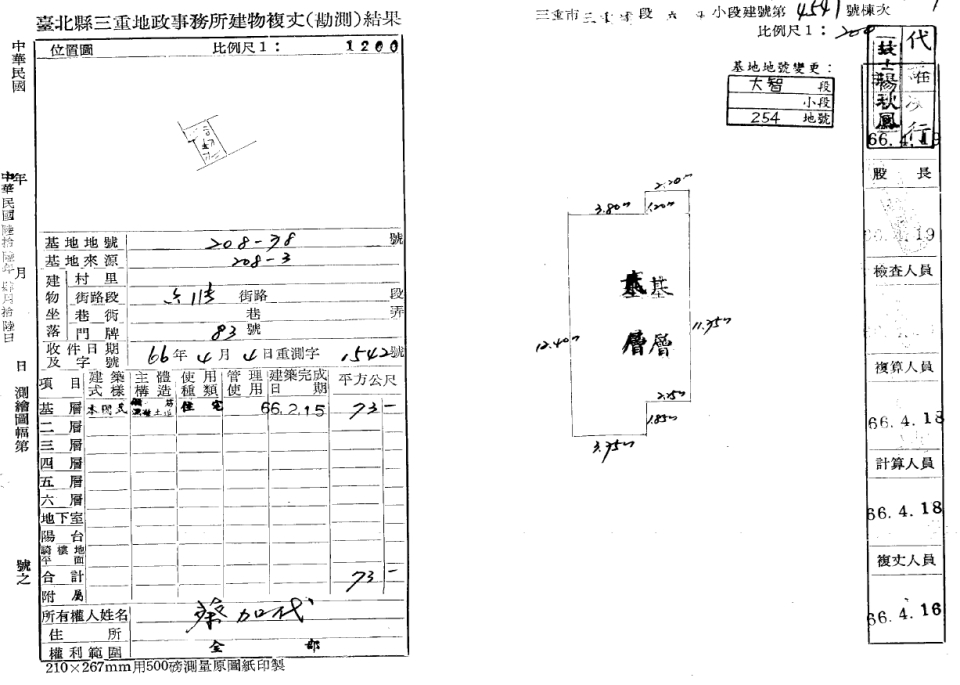 臺北縣三重地政事務所建物複丈(勘測)結果
位置圖 比例尺1: 1200
中華民國 年 月 日 測繪圖幅第 號之
中華民國陸拾陸年肆月拾陸日
基地地號 208-38 號
基地來源 208-3
建物坐落
村里
街路段 街路 段
巷衖 巷 弄
門牌 83號
收件日期及字號 66年4月4日重測字1542號
項目 建築式樣 主體構造 使用種類 管理使用 建築完成日期 平方公尺
基層 本國式 住宅 66.2.15 73-
二層
三層
四層
五層
六層
地下室
陽台
騎樓地平面
合計 73-
附屬
所有權人姓名 蔡加代
住所
權利範圍 全部
210×267mm用500磅測量原圖紙印製
三重市三重埔段六 小段建號第4541號棟次1
比例尺1:200
基地地號變更:
大智 段
小段
254 地號
2.20m
3.80m 1.20m
基 基
層 層
12.40m 11.35m
2.25m
1.85m
3.75m
代
行
技士楊秋鳳
66.4.19
股長
66.4.19
檢查人員
複算人員
66.4.18
計算人員
66.4.18
複丈人員
66.4.16